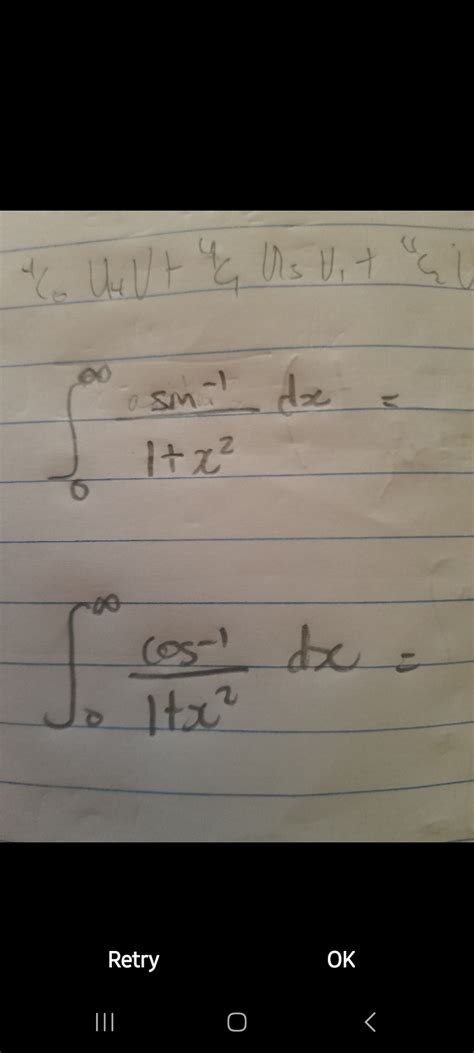 ⁴C₀ U₄V + ⁴C₁ U₃ V₁ + ⁴C₂ U
∫₀^∞ sin⁻¹/(1+x²) dx =
∫₀^∞ cos⁻¹/(1+x²) dx =
Retry OK